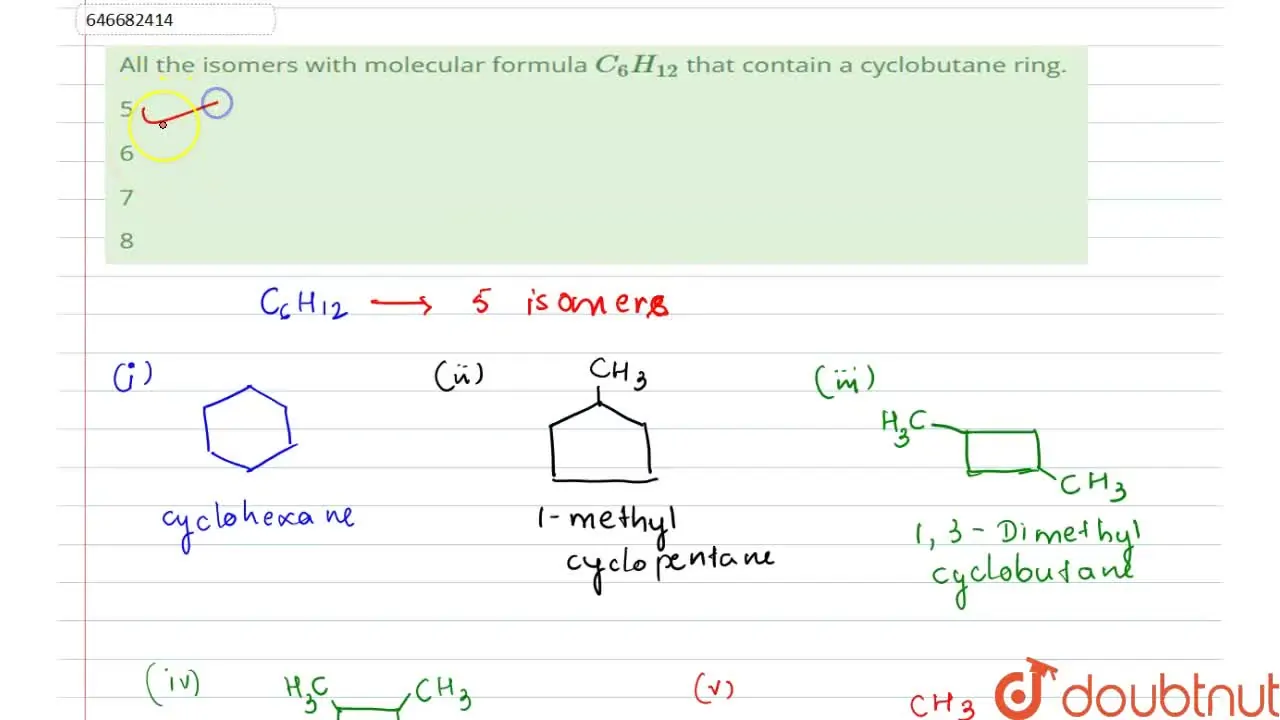 646682414
All the isomers with molecular formula C₆H₁₂ that contain a cyclobutane ring.
5
6
7
8
C₆H₁₂ → 5 isomers
(i)
cyclohexane
(ii)
CH₃
1-methyl
cyclopentane
(iii)
H₃C
CH₃
1,3-Dimethyl
cyclobutane
(iv)
H₃C
CH₃
(v)
CH₃
doubtnut